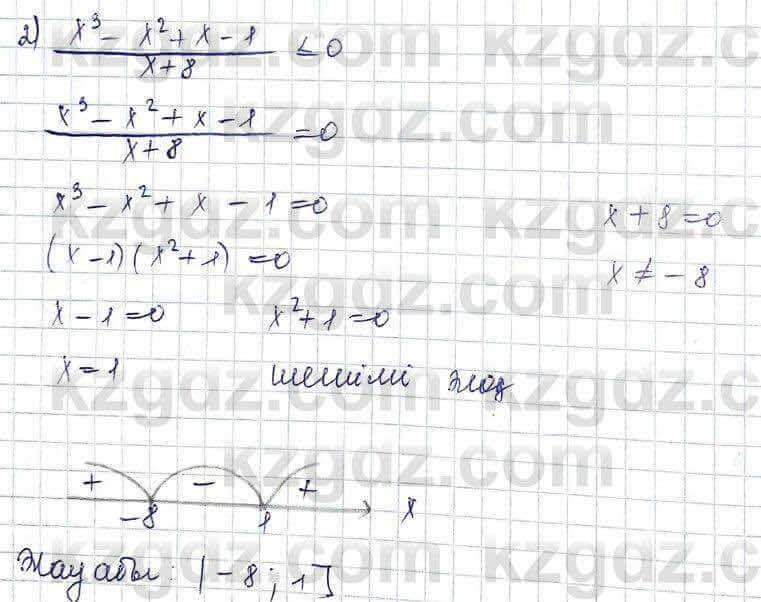 2) (x³ − x² + x − 1)/(x + 8) ≤ 0
(x³ − x² + x − 1)/(x + 8) = 0
x³ − x² + x − 1 = 0 x + 8 = 0
(x − 1)(x² + 1) = 0 x ≠ − 8
x − 1 = 0 x² + 1 = 0
x = 1 шешімі жоқ
+ − +
−8 1 x
Жауабы: (−8; 1]
kzgdz.com